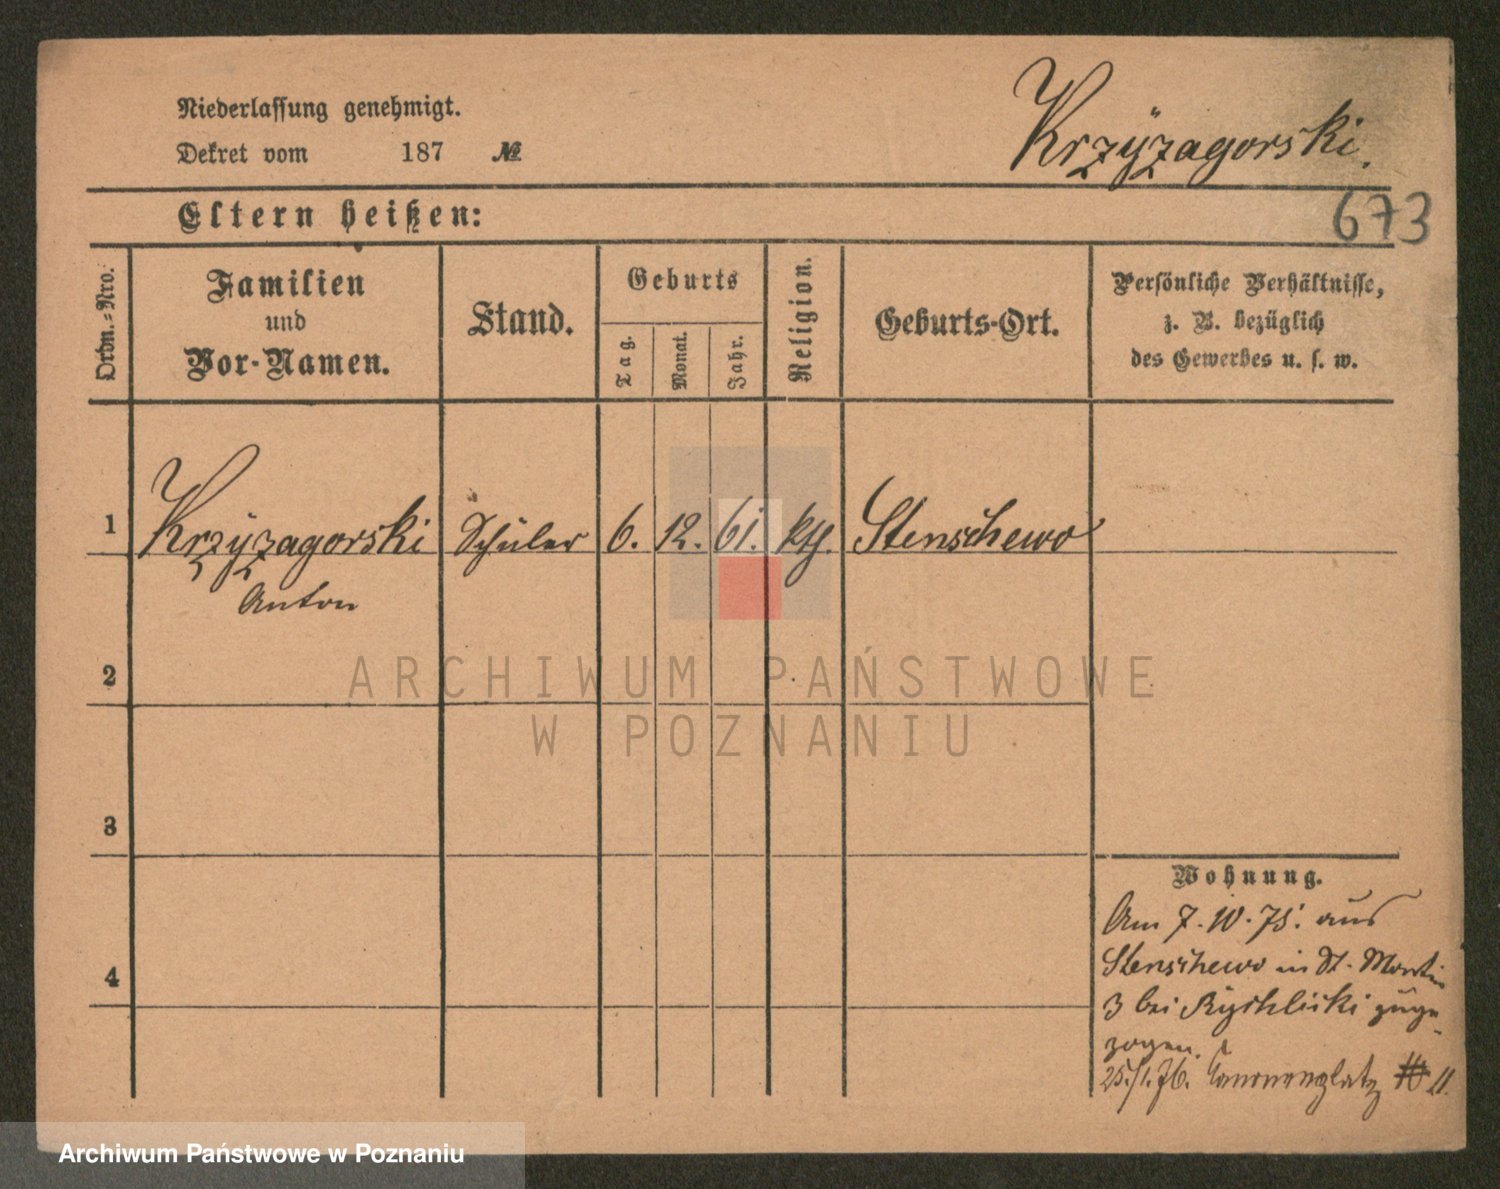 Niederlassung genehmigt.
Dekret vom 187 №
Krzÿzagorski.
Eltern heißen:
673
Ordn.-Nro.
Familien
und
Vor-Namen.
Stand.
Geburts
Tag.
Monat.
Jahr.
Religion.
Geburts-Ort.
Persönliche Verhältnisse,
z. B. bezüglich
des Gewerbes u. s. w.
1 Krzÿzagorski Schüler 6. 12. 61. kth. Stenschewo
Anton
2
3
4
Wohnung.
Am 7. 10. 75. aus
Stenschewo in St. Martin
3 bei Rychlicki zuge-
zogen.
25./1. 76. Canonenplatz 11.
ARCHIWUM PAŃSTWOWE
W POZNANIU
Archiwum Państwowe w Poznaniu